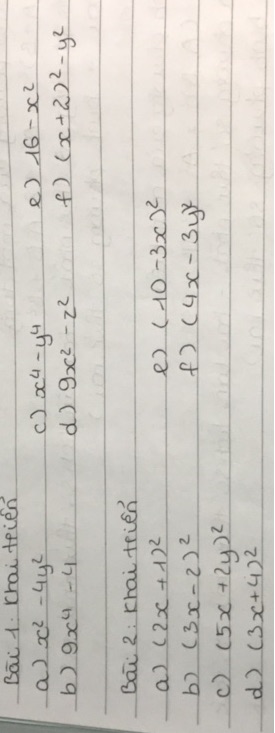 Bài 1: Khai triển
a) x² - 4y² c) x⁴ - y⁴ e) 16 - x²
b) 9x⁴ - 4 d) 9x² - z² f) (x+2)² - y²
Bài 2: Khai triển
a) (2x + 1)² e) (10 - 3x)²
b) (3x - 2)² f) (4x - 3y)²
c) (5x + 2y)²
d) (3x+4)²